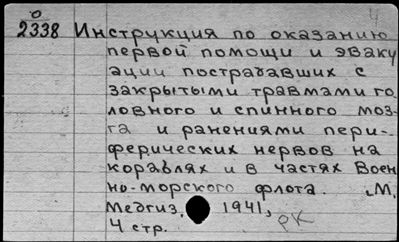 4
О
2338 Инструкция по оказанию
первой помощи и эваку
ации пострадавших с
закрытыми травмами го-
ловного и спинного моз-
га и ранениями пери-
ферических нервов на
кораблях и в частях Воен
но-морского флота. М.
Медгиз, 1941,
4 стр. РК